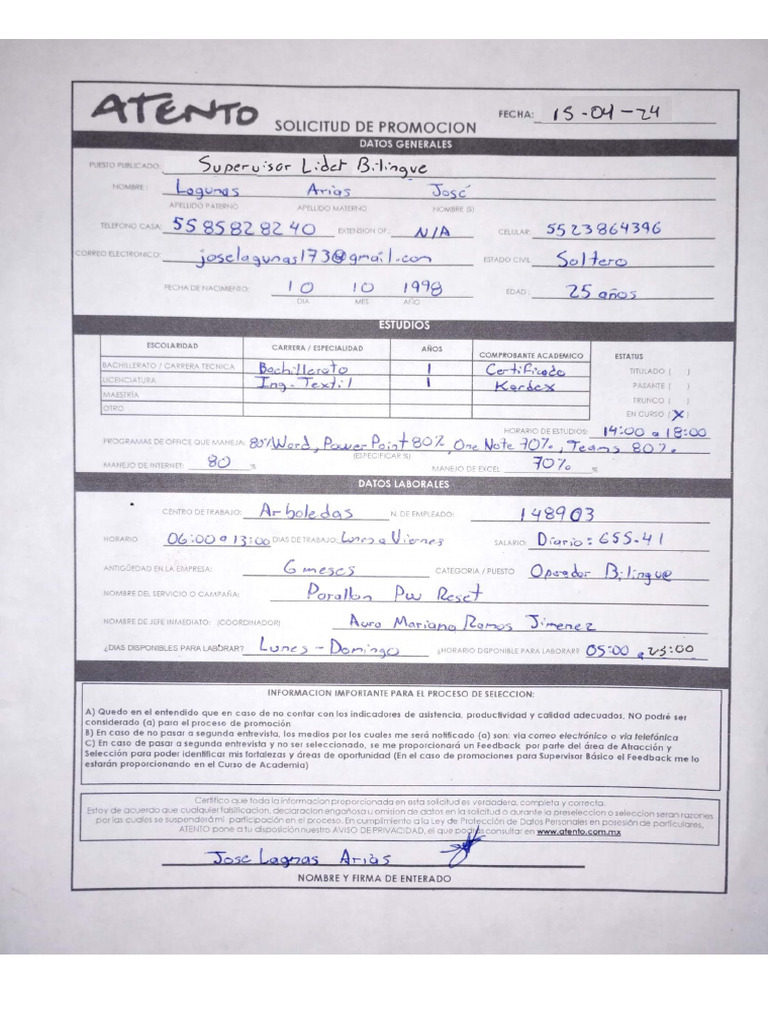 ATENTO
SOLICITUD DE PROMOCION
FECHA: 15-04-24
DATOS GENERALES
PUESTO PUBLICADO: Supervisor Lider Bilingue
NOMBRE: Lagunas Arias José
APELLIDO PATERNO APELLIDO MATERNO NOMBRE (S)
TELEFONO CASA: 5585828240 EXTENSION OF.: N/A CELULAR: 5523864396
CORREO ELECTRONICO: joselagunas173@gmail.com ESTADO CIVIL Soltero
FECHA DE NACIMIENTO: 10 10 1998 EDAD: 25 años
DIA MES AÑO
ESTUDIOS
ESCOLARIDAD CARRERA / ESPECIALIDAD AÑOS COMPROBANTE ACADEMICO ESTATUS
BACHILLERATO / CARRERA TECNICA Bachillerato 1 Certificado TITULADO ( )
LICENCIATURA Ing. Textil 1 Kardex PASANTE ( )
MAESTRÍA TRUNCO ( )
OTRO EN CURSO (X)
HORARIO DE ESTUDIOS: 14:00 a 18:00
PROGRAMAS DE OFFICE QUE MANEJA: 80% Word, PowerPoint 80%, One Note 70%, Teams 80%.
(ESPECIFICAR %)
MANEJO DE INTERNET: 80 % MANEJO DE EXCEL 70% %
DATOS LABORALES
CENTRO DE TRABAJO: Arboledas N. DE EMPLEADO: 148903
HORARIO 06:00 a 13:00 DIAS DE TRABAJO: Lunes a Viernes SALARIO: Diario: 655.41
ANTIGÜEDAD EN LA EMPRESA: 6 meses CATEGORIA / PUESTO Operador Bilingue
NOMBRE DEL SERVICIO O CAMPAÑA: Parallon Pw Reset
NOMBRE DE JEFE INMEDIATO: (COORDINADOR) Aura Mariana Ramos Jimenez
¿DIAS DISPONIBLES PARA LABORAR? Lunes - Domingo ¿HORARIO DISPONIBLE PARA LABORAR? 05:00 a 23:00
INFORMACION IMPORTANTE PARA EL PROCESO DE SELECCION:
A) Quedo en el entendido que en caso de no contar con los indicadores de asistencia, productividad y calidad adecuados. NO podré ser
considerado (a) para el proceso de promoción
B) En caso de no pasar a segunda entrevista, los medios por los cuales me será notificado (a) son: via correo electrónico o vía telefónica
C) En caso de pasar a segunda entrevista y no ser seleccionado, se me proporcionará un Feedback por parte del área de Atracción y
Selección para poder identificar mis fortalezas y áreas de oportunidad (En el caso de promociones para Supervisor Básico el Feedback me lo
estarán proporcionando en el Curso de Academia)
Certifico que toda la informacion proporcionada en esta solicitud es verdadera, completa y correcta.
Estoy de acuerdo que cualquier falsificacion, declaracion engañosa u omision de datos en la solicitud o durante la preseleccion o seleccion seran razones
por las cuales se suspenderá mi participación en el proceso. En cumplimiento a la Ley de Protección de Datos Personales en posesión de particulares,
ATENTO pone a tu disposición nuestro AVISO DE PRIVACIDAD, el que podrás consultar en www.atento.com.mx
Jose Lagnas Arias
NOMBRE Y FIRMA DE ENTERADO